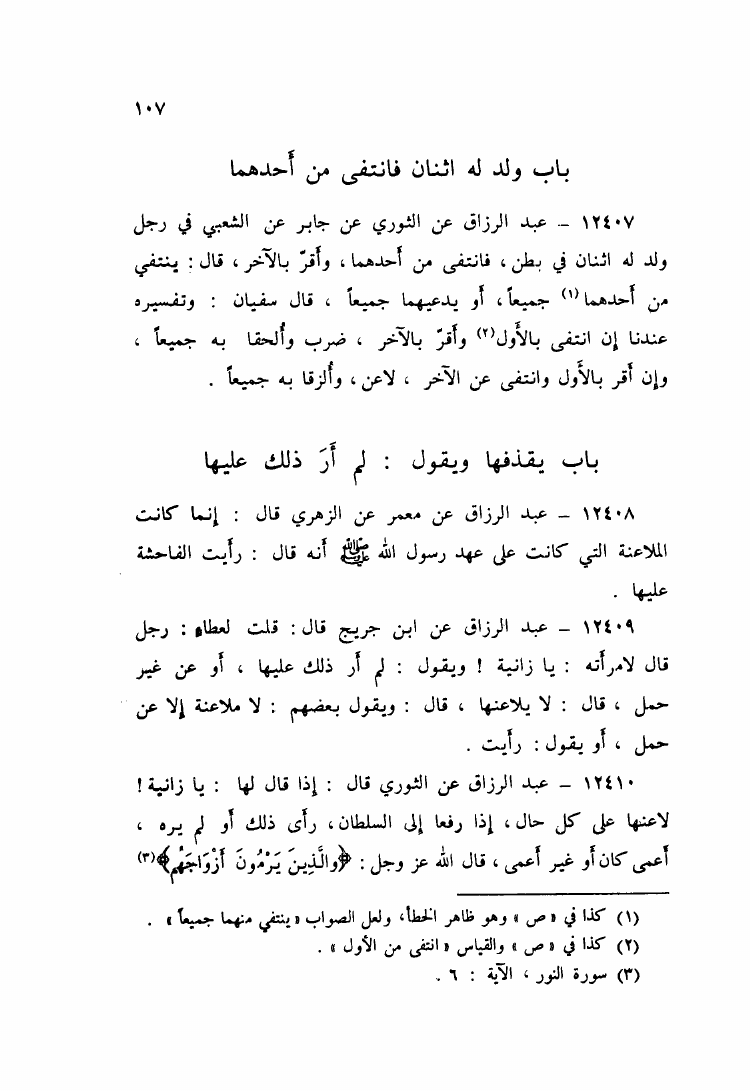 ١٠٧
باب ولد له اثنان فانتفى من أَحدهما
١٢٤٠٧ – عبد الرزاق عن الثوري عن جابر عن الشعبي في رجل
ولد له اثنان في بطن ، فانتفى من أَحدهما ، وأَقرّ بالآخر ، قال : ينتفي
من أَحدهما(١) جميعاً ، أَو يدعيهما جميعاً ، قال سفيان : وتفسيره
عندنا إِن انتفى بالأَول(٢) وأَقرّ بالآخر ، ضرب وأُلحقا به جميعاً ،
وإِن أَقر بالأَول وانتفى عن الآخر ، لاعن ، وأُلزقا به جميعاً .
باب يقذفها ويقول : لم أَرَ ذلك عليها
١٢٤٠٨ – عبد الرزاق عن معمر عن الزهري قال : إِنما كانت
الملاعنة التي كانت على عهد رسول الله ﷺ أَنه قال : رأَيت الفاحشة
عليها .
١٢٤٠٩ – عبد الرزاق عن ابن جريج قال : قلت لعطاء : رجل
قال لامرأَته : يا زانية ! ويقول : لم أَر ذلك عليها ، أَو عن غير
حمل ، قال : لا يلاعنها ، قال : ويقول بعضهم : لا ملاعنة إِلا عن
حمل ، أَو يقول : رأَيت .
١٢٤١٠ – عبد الرزاق عن الثوري قال : إِذا قال لها : يا زانية !
لاعنها على كل حال ، إِذا رفعا إِلى السلطان ، رأَى ذلك أَو لم يره ،
أَعمى كان أَو غير أَعمى ، قال الله عز وجل : ﴿والَّذِينَ يَرْمُونَ أَزْوَاجَهُم﴾(٣)
(١) كذا في « ص » وهو ظاهر الخطأ، ولعل الصواب « ينتفي منهما جميعاً » .
(٢) كذا في « ص » والقياس « انتفى من الأول » .
(٣) سورة النور ، الآية : ٦ .